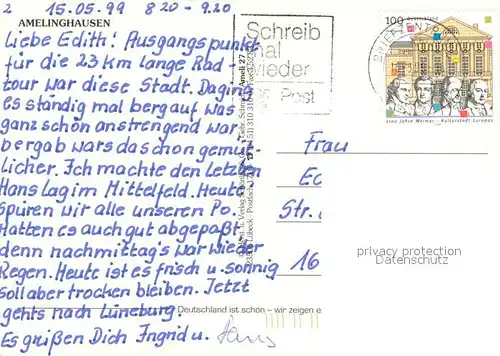 2 15.05.99 8 20 - 9.20
AMELINGHAUSEN
Liebe Edith! Ausgangspunkt
für die 23 km lange Rad-
tour war diese Stadt. Da ging
es ständig mal berg auf was
ganz schön anstrengend war
bergab war's da schon gemüt-
licher. Ich machte den Letzten
Hans lag im Mittelfeld. Heute
spüren wir alle unseren Po.
Hatten es auch gut abgepaßt
denn nachmittag's war wieder
Regen. Heute ist es frisch u. sonnig
soll aber trocken bleiben. Jetzt
geht's nach Lüneburg.
Es grüßen Dich Ingrid u. Hans
Deutschland ist schön – wir zeigen e
Schreib
mal
wieder
Post
100 Deutschland
1100 Jahre Weimar - Kulturstadt Europas
BRIEFZENTRUM
Ameli 27
Frau
Ed
Str.
16
privacy protection
Datenschutz